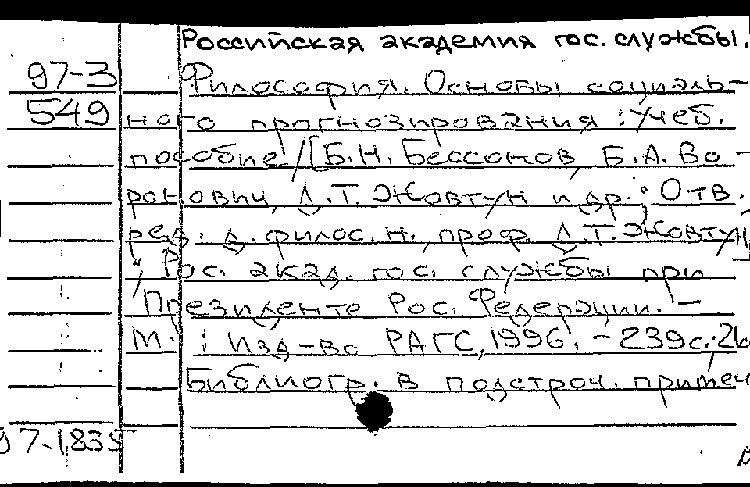 Российская академия гос. службы.
97-3 Философия. Основы социаль-
549 ного прогнозирования : Учеб.
пособие / [Б.Н. Бессонов, Б.А. Во-
ронович, Л.Т. Жовтун и др.; Отв.
ред. д. филос. н., проф. Л.Т. Жовтун]
; Рос. акад. гос. службы при
Президенте Рос. Федерации. –
М. : Изд-во РАГС, 1996. – 239с.;
Библиогр. в подстроч. примеч
97-1835